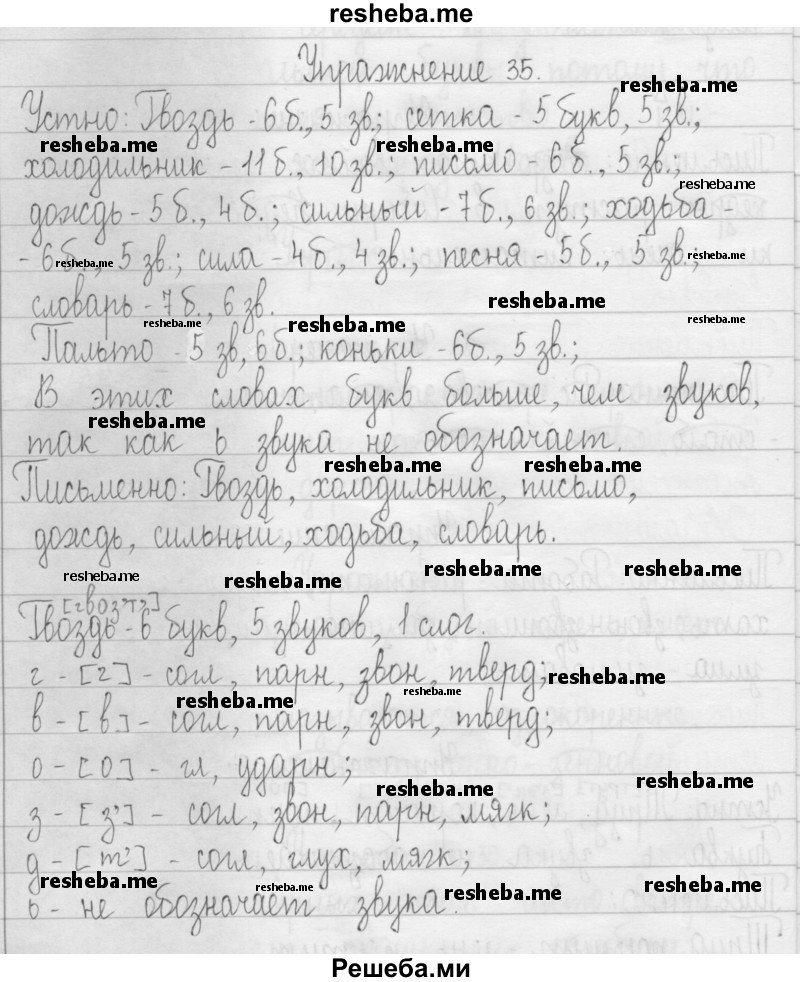 resheba.me
Упражнение 35.
resheba.me
Устно: Гвоздь - 6 б., 5 зв.; сетка - 5 букв, 5 зв.;
resheba.me resheba.me
холодильник - 11 б., 10 зв., письмо - 6 б., 5 зв.;
resheba.me
дождь - 5 б., 4 б.; сильный - 7 б., 6 зв.; ходьба -
- 6 б., 5 зв.; сила - 4 б., 4 зв.; песня - 5 б., 5 зв.;
resheba.me resheba.me resheba.me
словарь - 7 б., 6 зв.
resheba.me
resheba.me resheba.me resheba.me
Пальто - 5 зв, 6 б.; коньки - 6 б., 5 зв.;
В этих словах букв больше, чем звуков,
resheba.me
так как ь звука не обозначает.
resheba.me resheba.me
Письменно: Гвоздь, холодильник, письмо,
дождь, сильный, ходьба, словарь.
resheba.me resheba.me resheba.me resheba.me
[гвоз'т']
Гвоздь - 6 букв, 5 звуков, 1 слог.
г - [г] - согл, парн, звон, тверд;
resheba.me
resheba.me resheba.me
в - [в] - согл, парн, звон, тверд;
о - [о] - гл, ударн;
resheba.me resheba.me
з - [з'] - согл, звон, парн, мягк;
д - [т'] - согл, глух, мягк;
resheba.me resheba.me resheba.me resheba.me
ь - не обозначает звука.
Решеба.ми